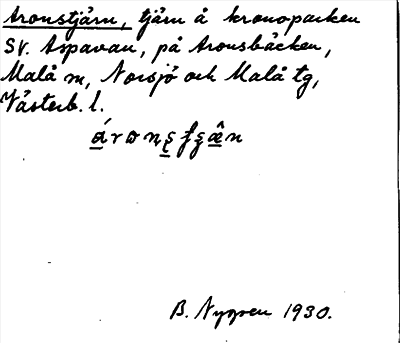 Aronstjärn, tjärn å kronoparken
SV. Aspavan, på Aronsbäcken,
Malå sn, Norsjö och Malå tg,
Västerb. l.
B. Nygren 1930.